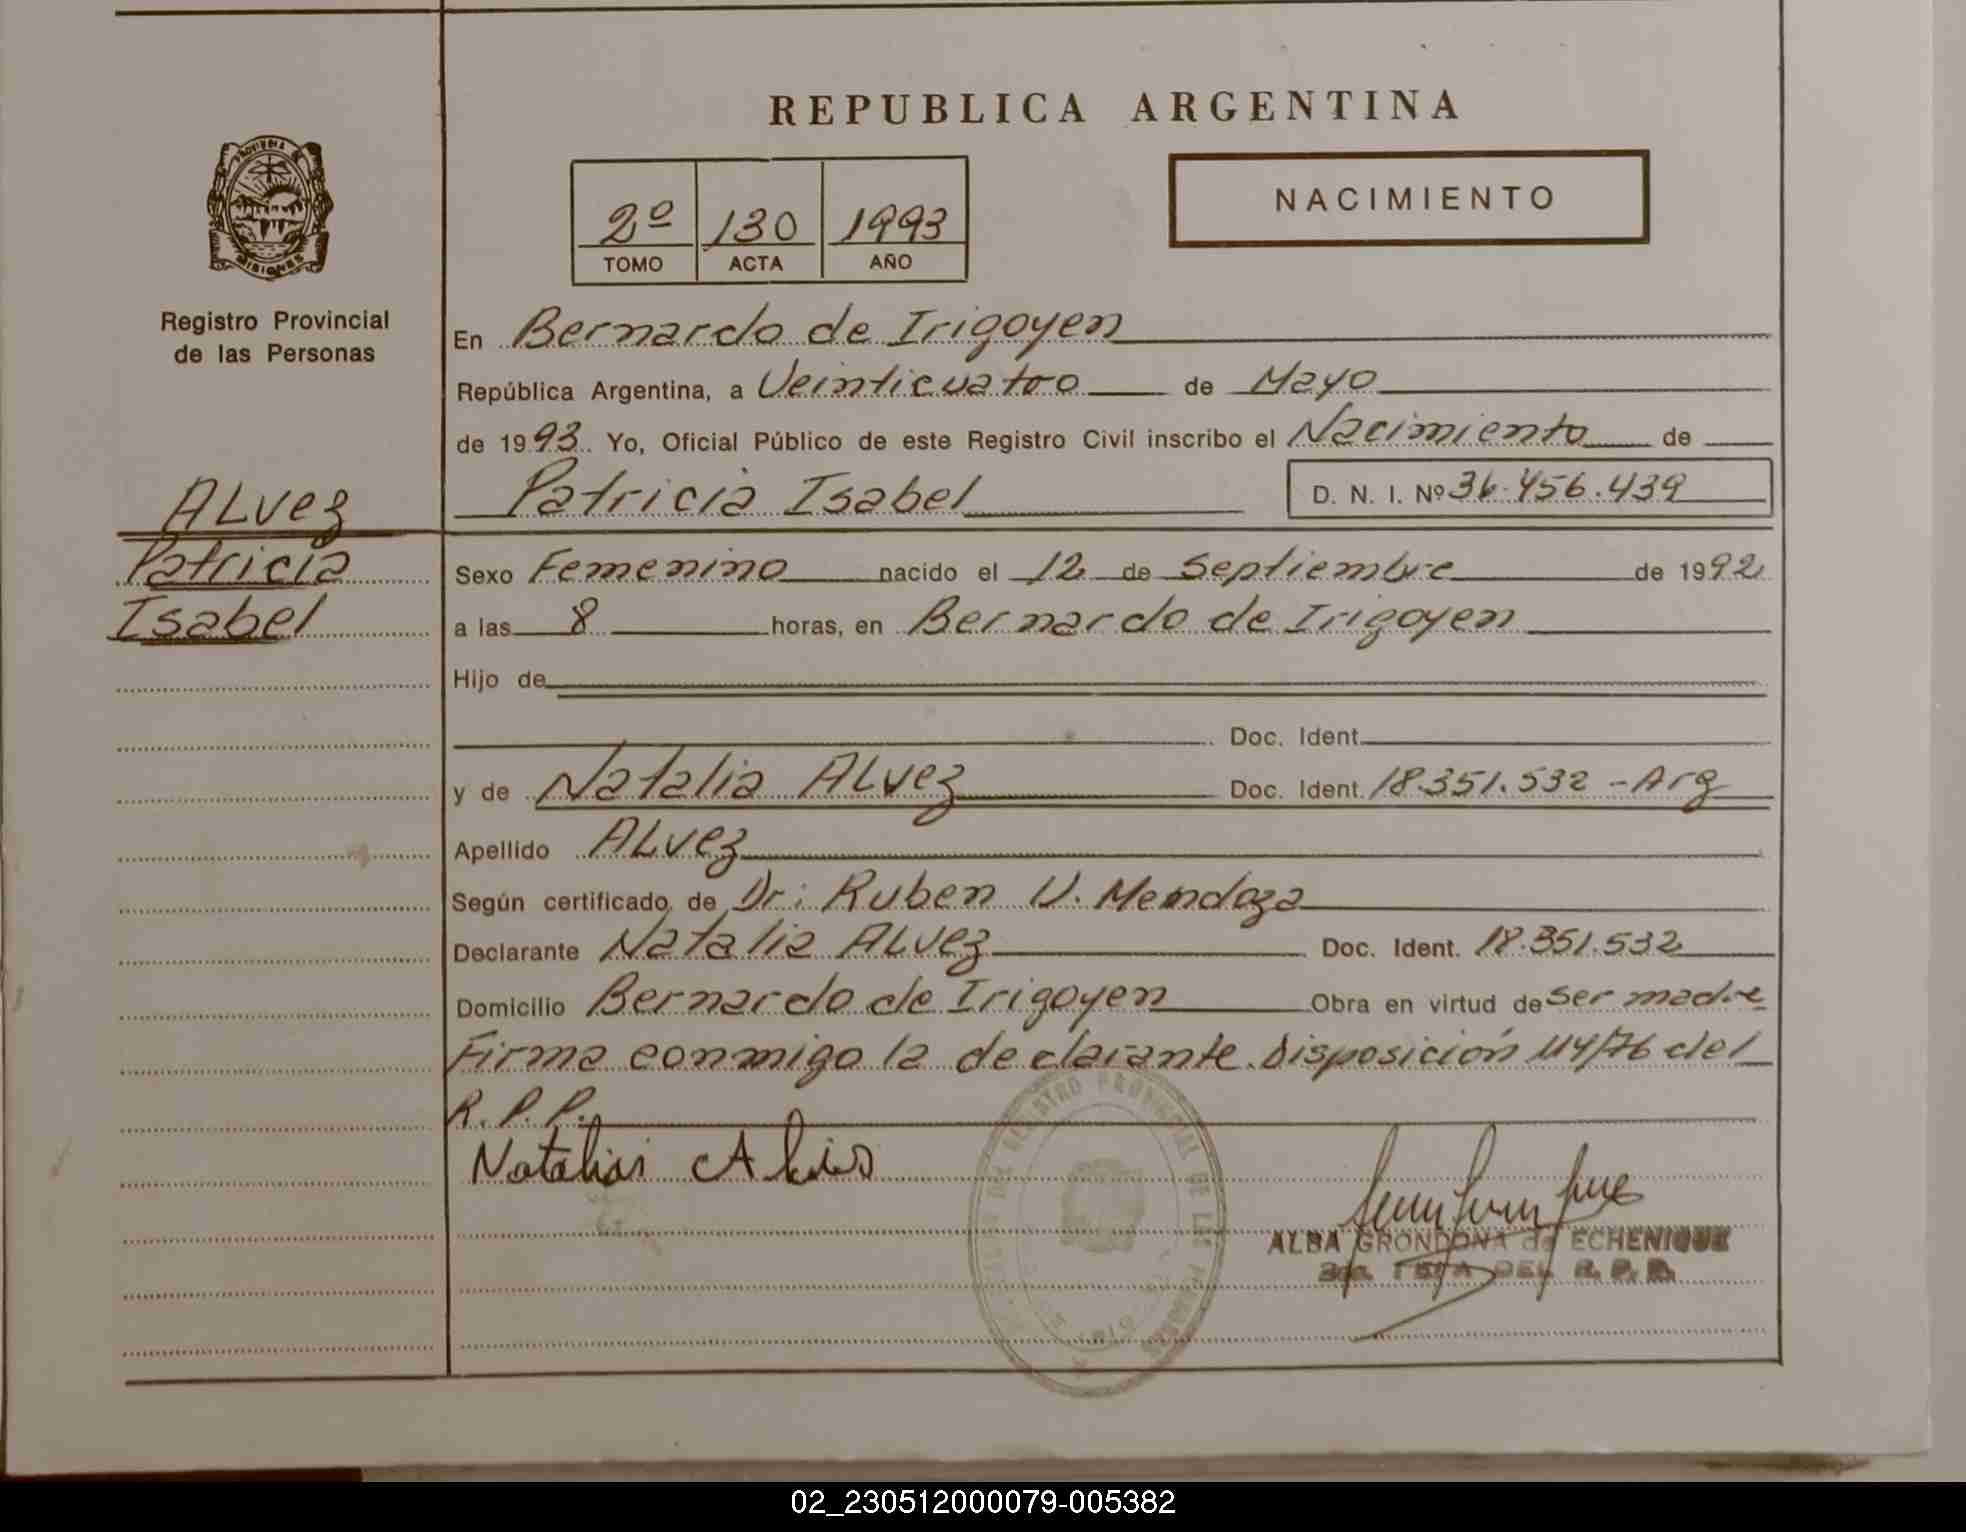 REPUBLICA ARGENTINA
PROVINCIA DE
MISIONES
Registro Provincial
de las Personas
2º 130 1993
TOMO ACTA AÑO
NACIMIENTO
En Bernardo de Irigoyen
República Argentina, a Veinticuatro de Mayo
de 1993. Yo, Oficial Público de este Registro Civil inscribo el Nacimiento de
Patricia Isabel D. N. I. Nº 36.456.439
ALvez
Patricia
Isabel
Sexo Femenino nacido el 12 de Septiembre de 1992
a las 8 horas, en Bernardo de Irigoyen
Hijo de
Doc. Ident.
y de Natalia ALvez Doc. Ident. 18.351.532 - Arg
Apellido ALvez
Según certificado de Dr: Ruben V. Mendoza
Declarante Natalia ALvez Doc. Ident. 18.351.532
Domicilio Bernardo de Irigoyen Obra en virtud de ser madre
Firma conmigo la declarante. Disposición 114/76 del
R. P. P.
REGISTRO PROVINCIAL DE LAS PERSONAS
ALBA GRONDONA de ECHENIQUE
DEL R. P. P.
02_230512000079-005382